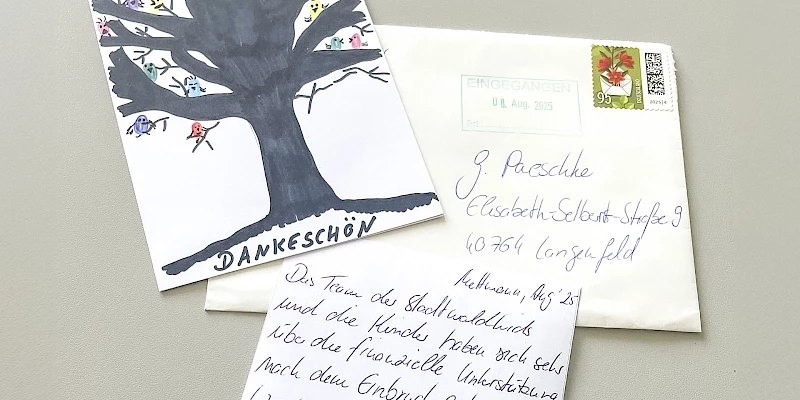 DANKESCHÖN
EINGEGANGEN
08. Aug. 2025
95
DEUTSCHLAND
G. Paeschke
Elisabeth-Selbert-Straße 9
40764 Langenfeld
Mettmann, Aug '25
Das Team der Stadtwaldkids
und die Kinder haben sich sehr
über die finanzielle Unterstützung
nach dem Einbruch